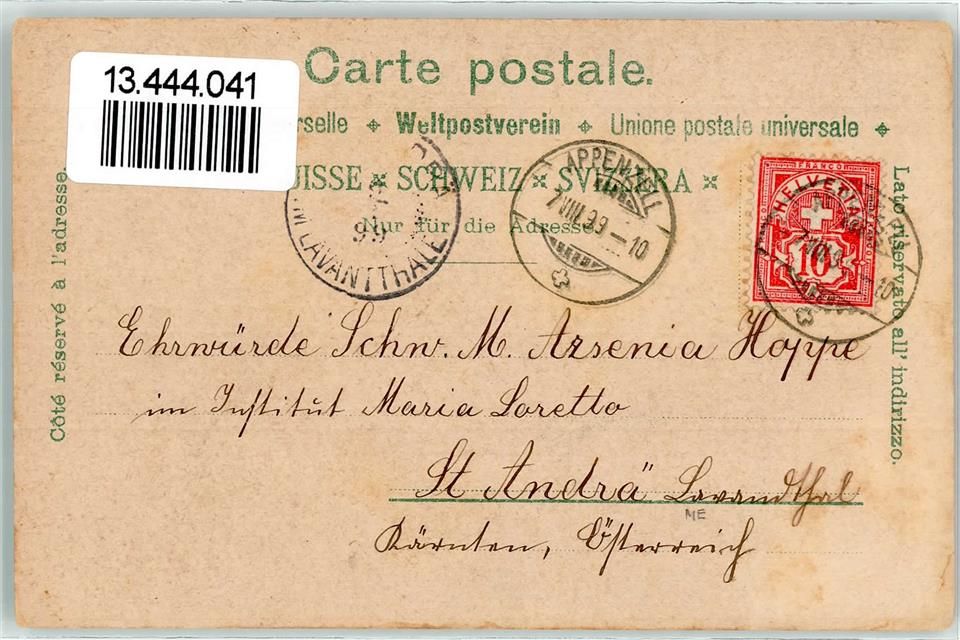 13.444.041
Carte postale.
rselle Weltpostverein Unione postale universale
UISSE SCHWEIZ SVIZZERA
Nur für die Adresse.
Côté réservé à l'adresse.
Lato riservato all' indirizzo.
LAVANTTHALE
99
APPENZELL
7.VIII.99-10
FRANCO
HELVETIA
10
7.VIII.9 -10
Ehrwürde Schw. M. Arsenia Hoppe
im Institut Maria Loretto
St Andrä Lavandthal
ME
Kärnten, Österreich